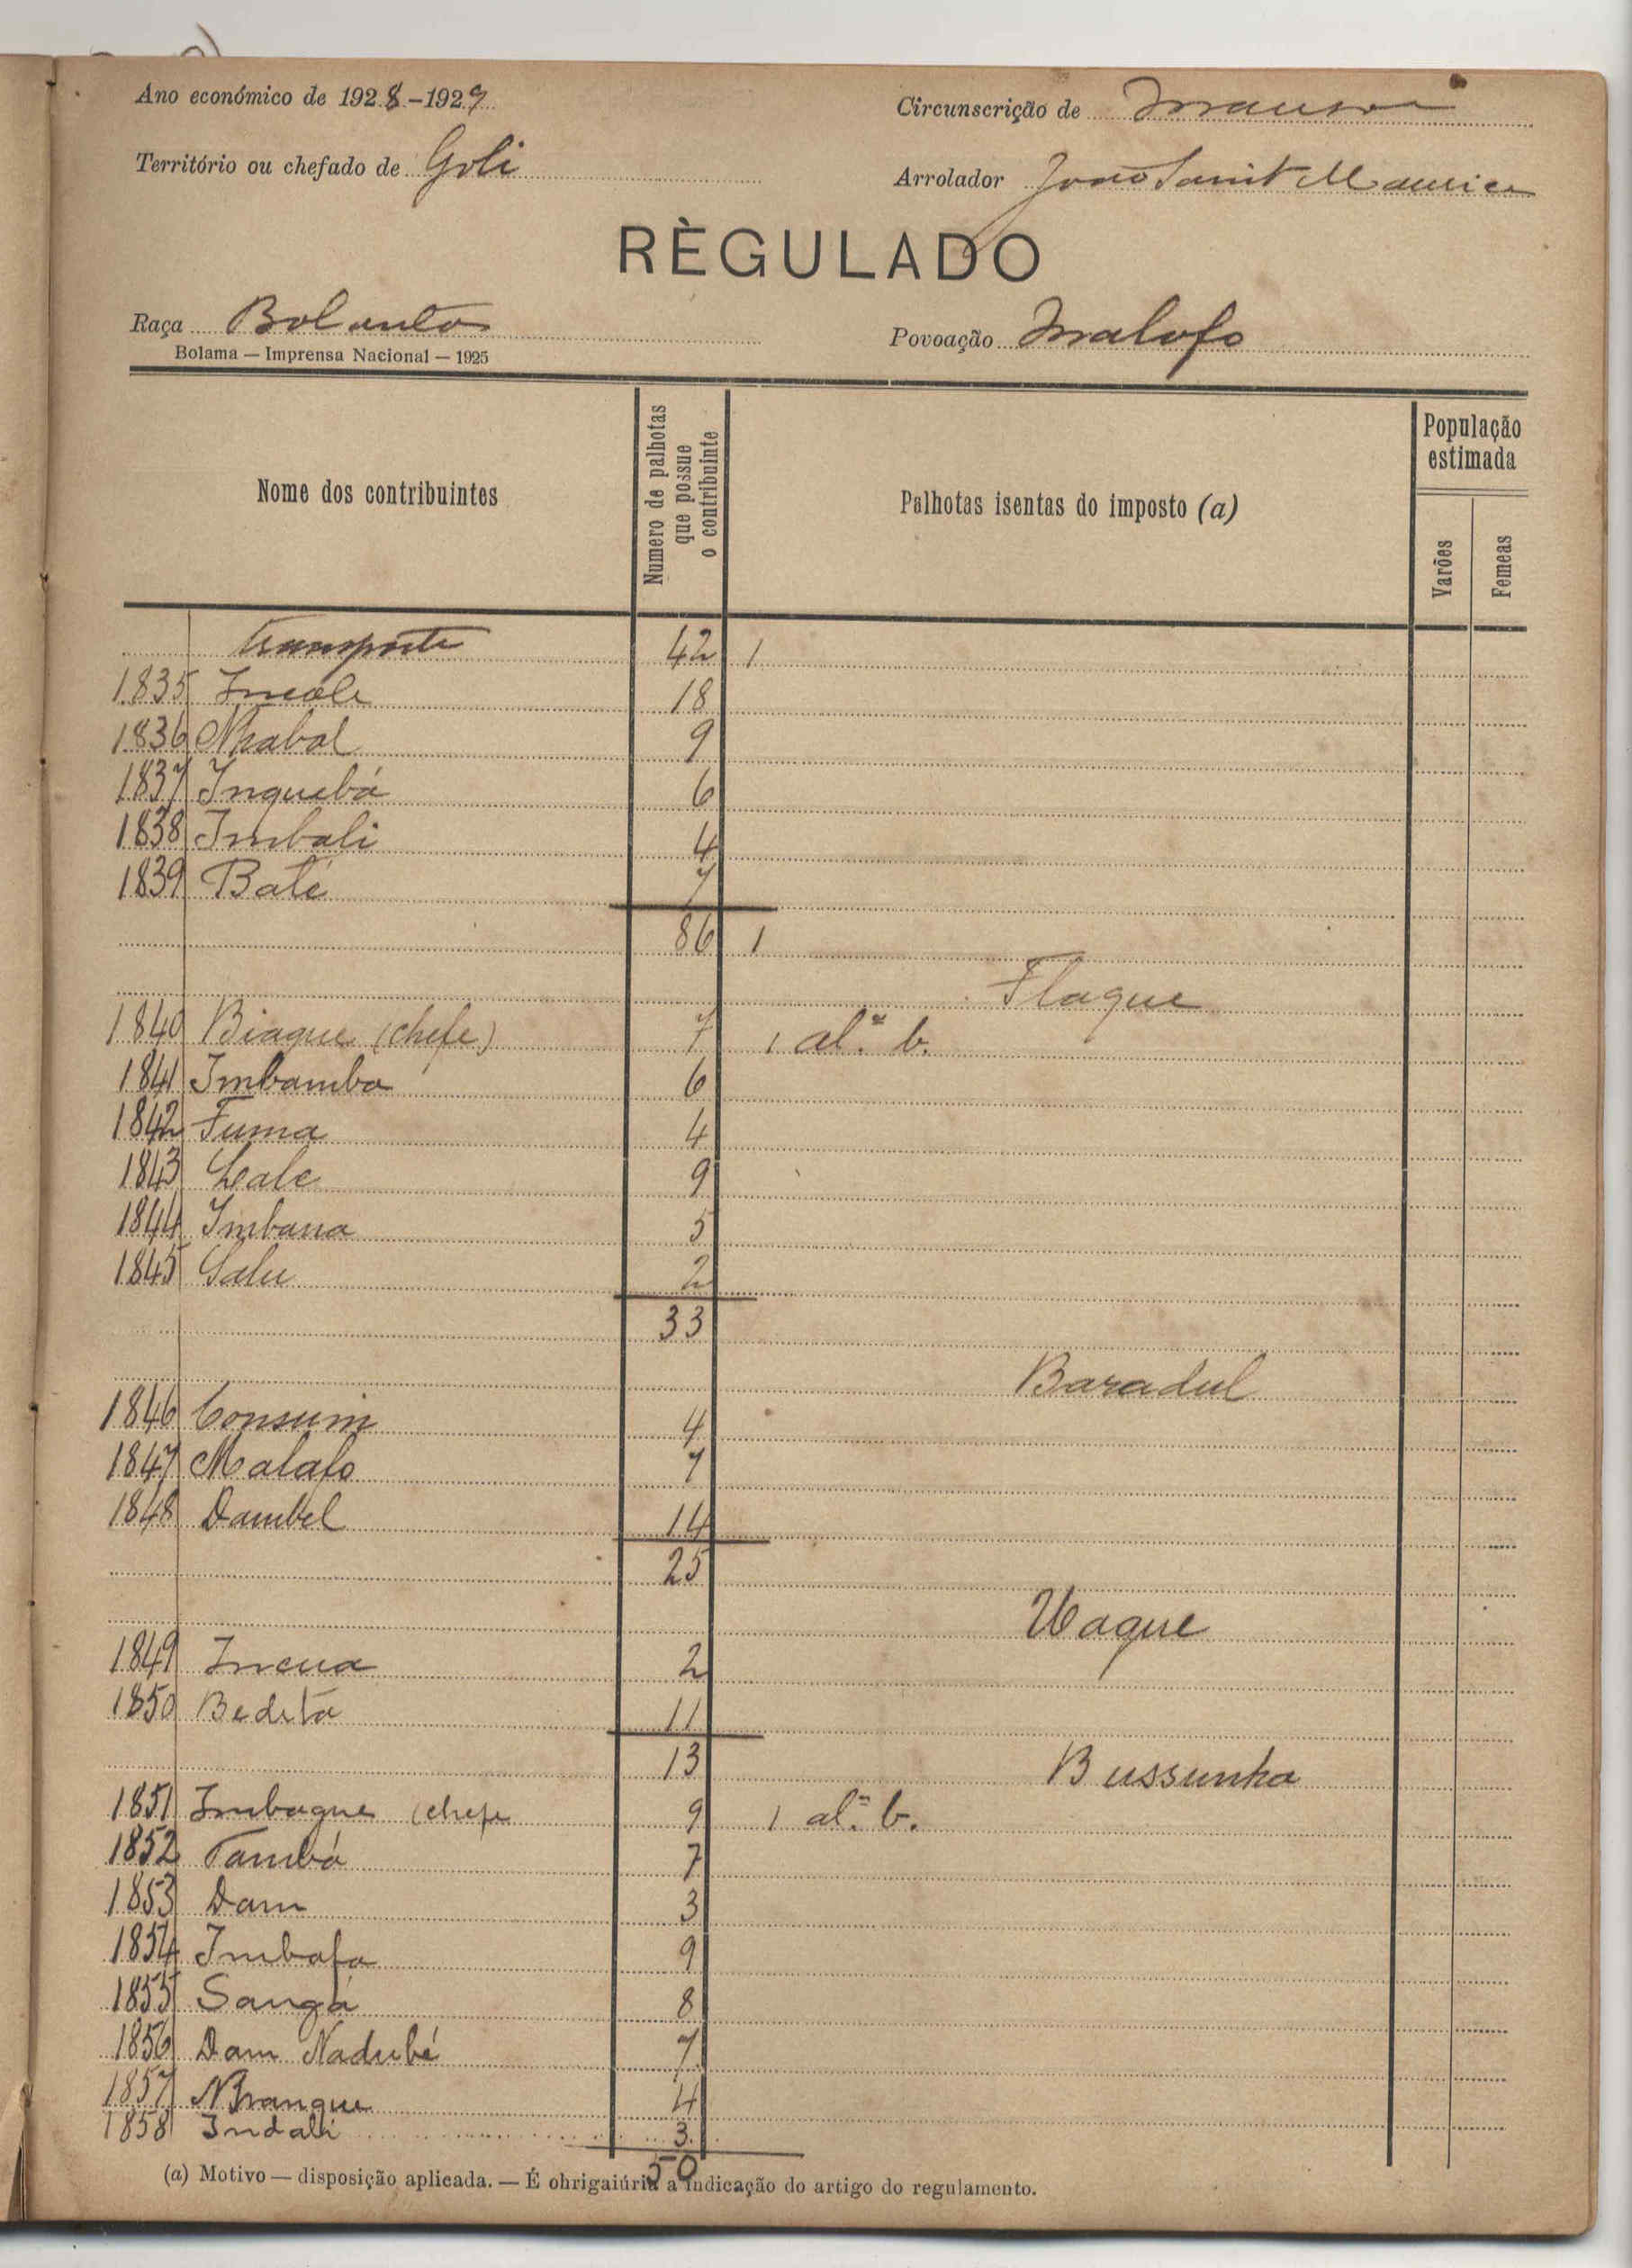 Ano económico de 1928-1929
Circunscrição de
Território ou chefado de Goli
Arrolador João
RÈGULADO
Raça Bolanta
Povoação Malofo
Bolama — Imprensa Nacional — 1925
Nome dos contribuintes
Numero de palhotas que possue o contribuinte
Palhotas isentas do imposto (a)
População estimada
Varões
Femeas
Transporte 42 1
1835 Incale 18
1836 Nhabal 9
1837 Inquebá 6
1838 Imbali 4
1839 Baté 7
86 1
Flaque
1840 Biaque (chefe) 7 1 al.ª b.
1841 Imbamba 6
1842 Fuma 4
1843 Lale 9
1844 Imbana 5
1845 Salu 2
33
Baradul
1846 Consum 4
1847 Malafo 7
1848 Dambel 14
25
Uaque
1849 Incua 2
1850 Bedeta 11
13
Bussunha
1851 Imbaque (chefe 9 1 al.ª b.
1852 Tambá 7
1853 Dam 3
1854 Imbafa 9
1855 Sangá 8
1856 Dam Nadubé 7
1857 4
1858 Indali 3
50
(a) Motivo — disposição aplicada. — É ohrigaiúria a indicação do artigo do regulamento.